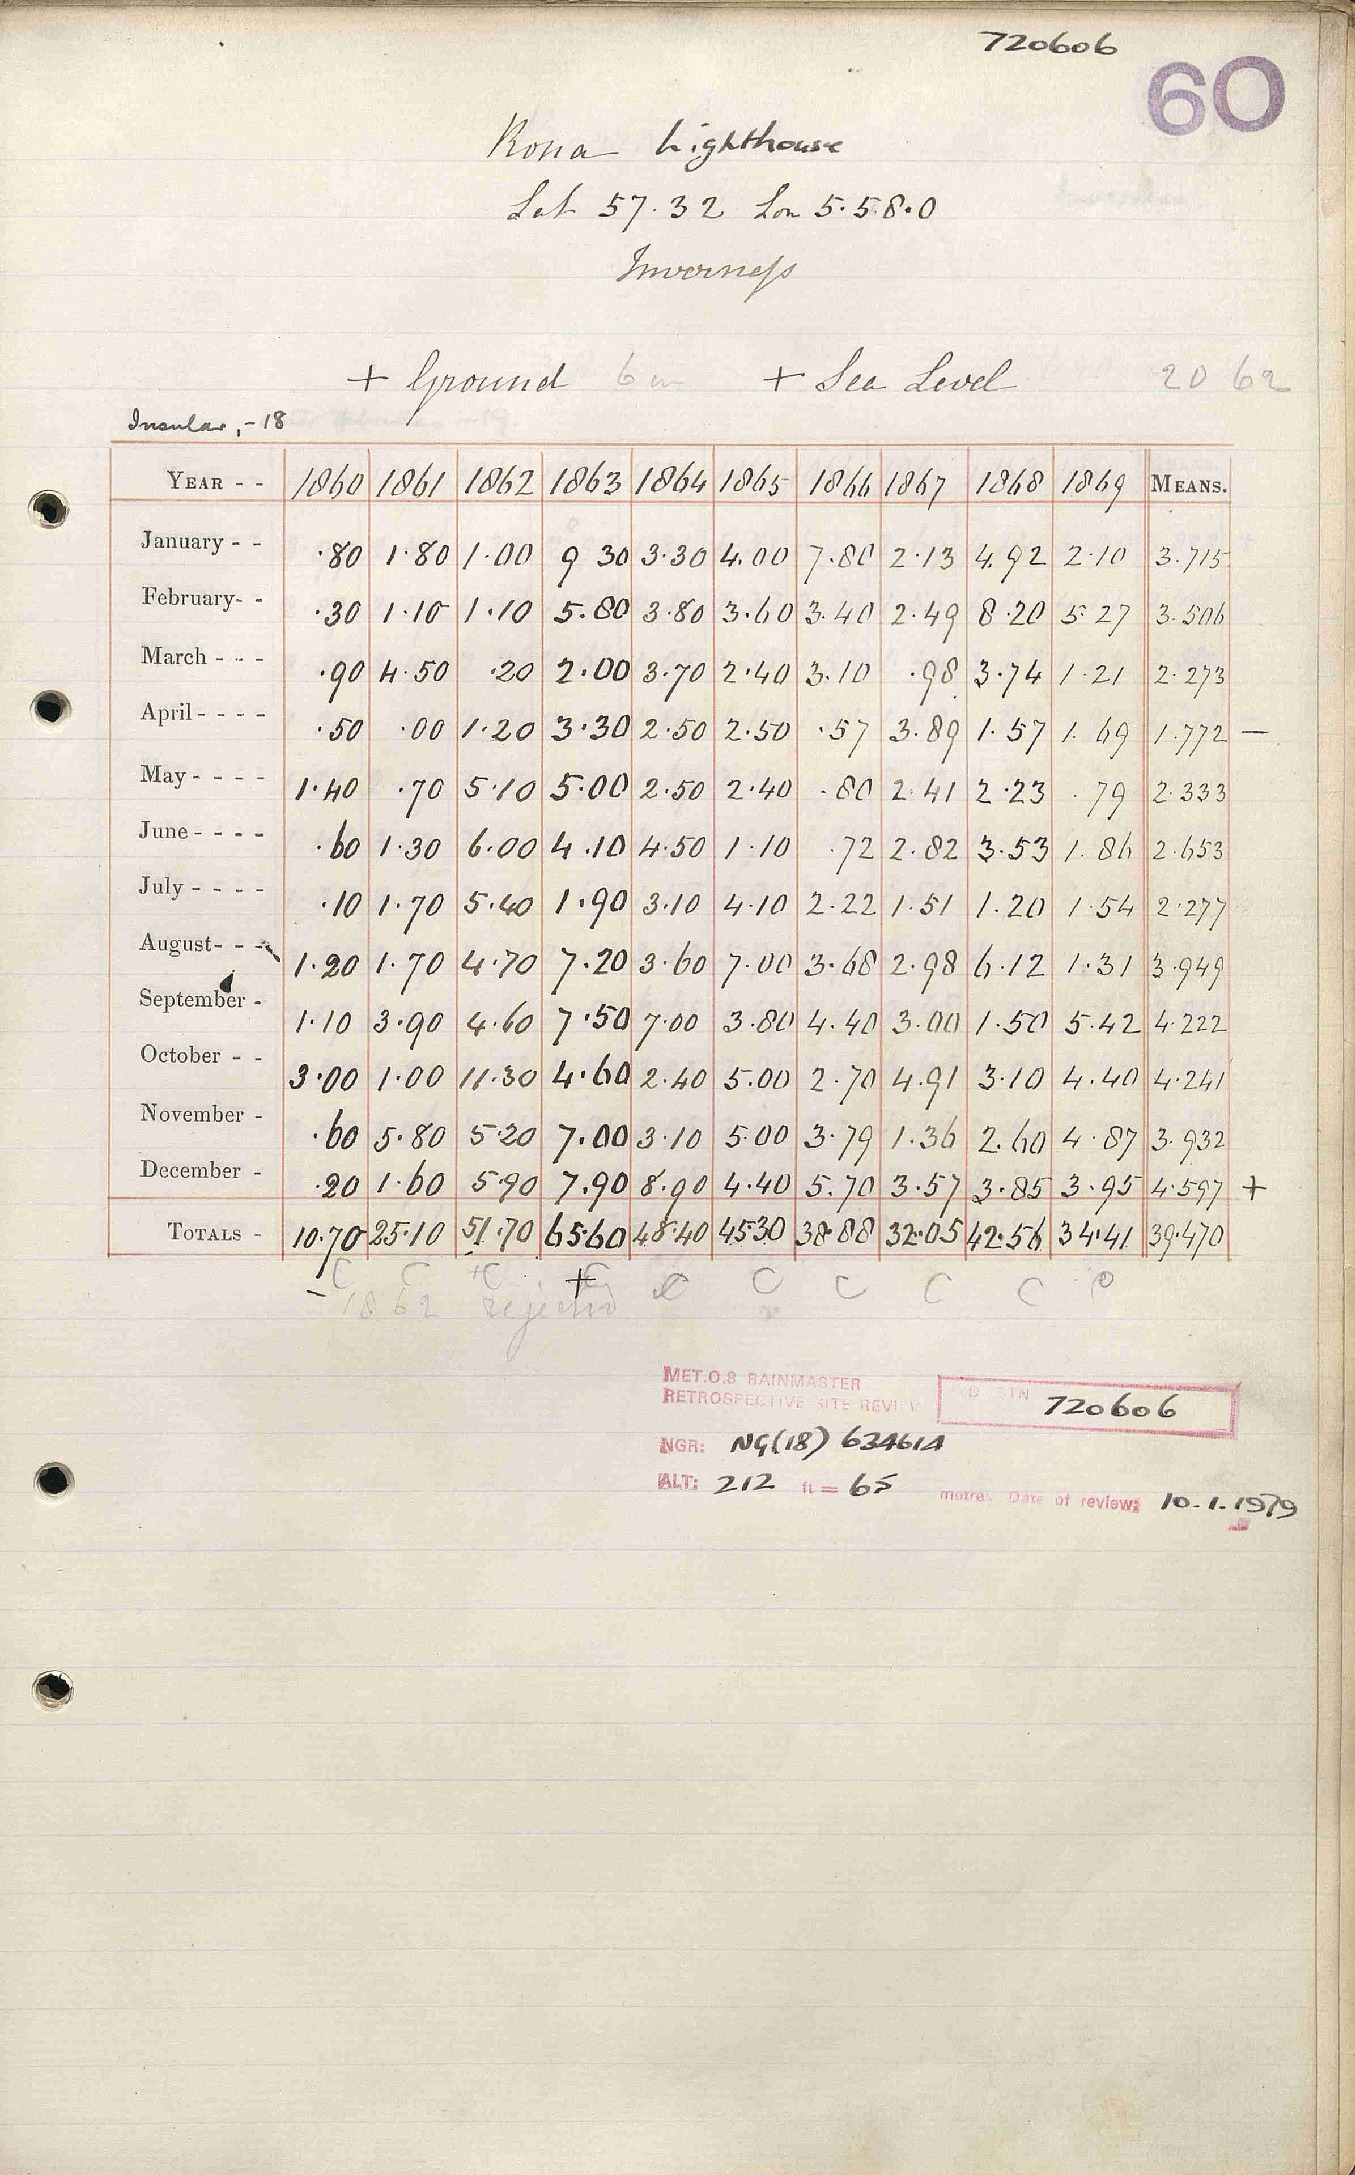 720606
60
Rona Lighthouse
Lat 57.32 Lon 5.58.0
Inverness
+ Ground 6 in + Sea Level 20 62
Insular, -18
YEAR - - 1860 1861 1862 1863 1864 1865 1866 1867 1868 1869 MEANS.
January - - .80 1.80 1.00 9 30 3.30 4.00 7.80 2.13 4.92 2.10 3.715
February- - .30 1.10 1.10 5.80 3.80 3.60 3.40 2.49 8.20 5.27 3.506
March - - - .90 4.50 .20 2.00 3.70 2.40 3.10 .98 3.74 1.21 2.273
April - - - - .50 .00 1.20 3.30 2.50 2.50 .57 3.89 1.57 1.69 1.772 —
May - - - - 1.40 .70 5.10 5.00 2.50 2.40 .80 2.41 2.23 .79 2.333
June - - - - .60 1.30 6.00 4.10 4.50 1.10 .72 2.82 3.53 1.86 2.653
July - - - - .10 1.70 5.40 1.90 3.10 4.10 2.22 1.51 1.20 1.54 2.277
August- - - 1.20 1.70 4.70 7.20 3.60 7.00 3.68 2.98 6.12 1.31 3.949
September - 1.10 3.90 4.60 7.50 7.00 3.80 4.40 3.00 1.50 5.42 4.222
October - - 3.00 1.00 11.30 4.60 2.40 5.00 2.70 4.91 3.10 4.40 4.241
November - .60 5.80 5.20 7.00 3.10 5.00 3.79 1.36 2.60 4.87 3.932
December - .20 1.60 5.90 7.90 8.90 4.40 5.70 3.57 3.85 3.95 4.597 +
TOTALS - 10.70 25.10 51.70 65.60 48.40 45.30 38.88 32.05 42.56 34.41 39.470
C C C C C C C C C C
- 1862 rejected +
MET.O.8 RAINMASTER
RETROSPECTIVE SITE REVIEW
STN 720606
NGR: NG(18) 634614
ALT: 212 ft = 65 metres Date of review: 10.1.1979